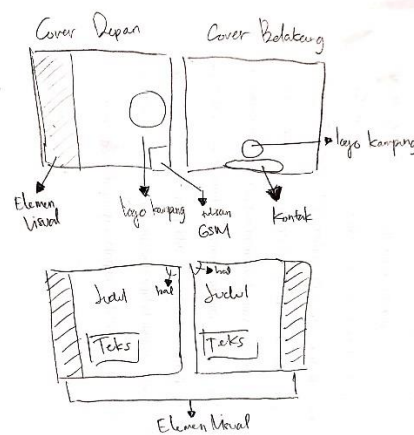 Cover Depan
Cover Belakang
logo kampung
Elemen
Visual
logo kampung
GSM
Kontak
hal
hal
Judul
Judul
Teks
Teks
Elemen Visual